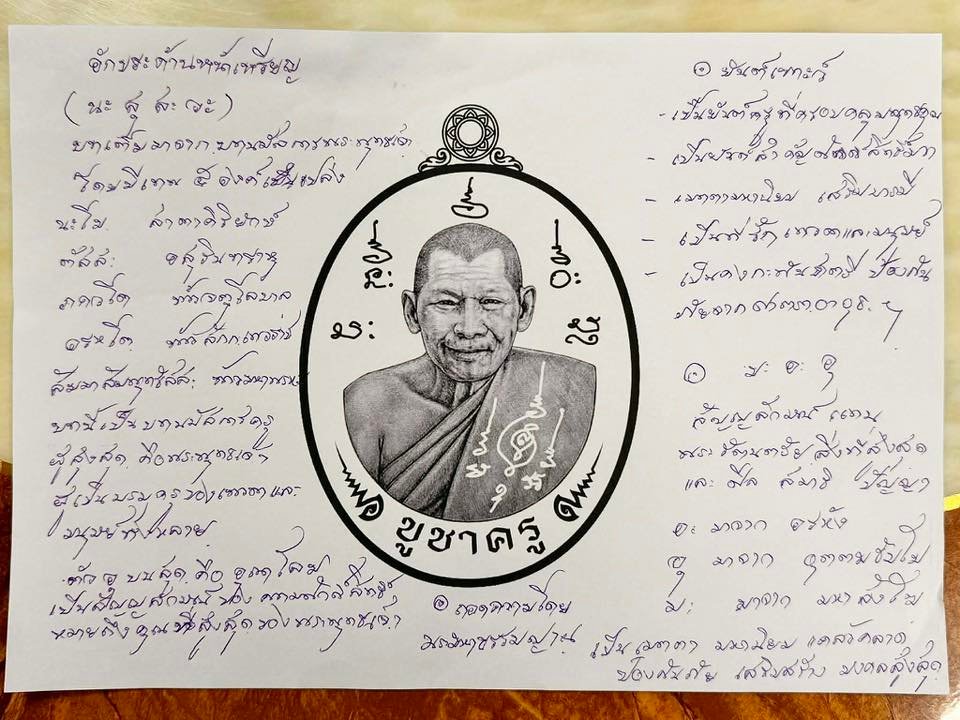 อักขระด้านหน้าเหรียญ
(นะ สุ สะ วะ)
บทเต็มมาจาก บทนมัสการพระพุทธเจ้า
โดยมีเทพ ๕ องค์เป็นแปล่ง
นะโม สาตาคิริยักษ์
ตัสสะ อสุรินทราหู
ภควโต ท้าวจตุโลบาล
อรหโต ท้าวสักกะเทวราช
สัมมาสัมพุทธัสสะ ท้าวมหาพรหม
บทนี้เป็นบทนมัสการครู
ผู้สูงสุด คือพระพุทธเจ้า
ผู้เป็นบรมครูของเทวดาและ
มนุษย์ทั้งหลาย
ตัว อุ บนสุด คือ อุณาโลม
เป็นสัญญลักษณ์ของความศักดิ์สิทธิ์
หมายถึงคุณที่สูงสุดของพระพุทธเจ้า
บูชาครู
ถอดความโดย
ยันต์
- เป็นยันต์ครูที่ครอบคลุม
- เป็นยันต์สำคัญ
- เมตตามหานิยม เสริมบารมี
- เป็นที่รักเทวดาและมนุษย์
- เป็นคงกะพันชาตรี ป้องกัน
ภัยจากศาสตราอาวุธ ฯ
มะ อะ อุ
สัญญลักษณ์แทน
พระรัตนตรัย สิ่งที่สูงสุด
และ ศีล สมาธิ ปัญญา
อะ มาจาก อรหัง
อุ มาจาก อุตตมธัมโม
มะ มาจาก มหาสังโฆ
เป็นเมตตา มหานิยม แคล้วคลาด
ป้องกันภัย เสริมสร้าง มงคลสูงสุด